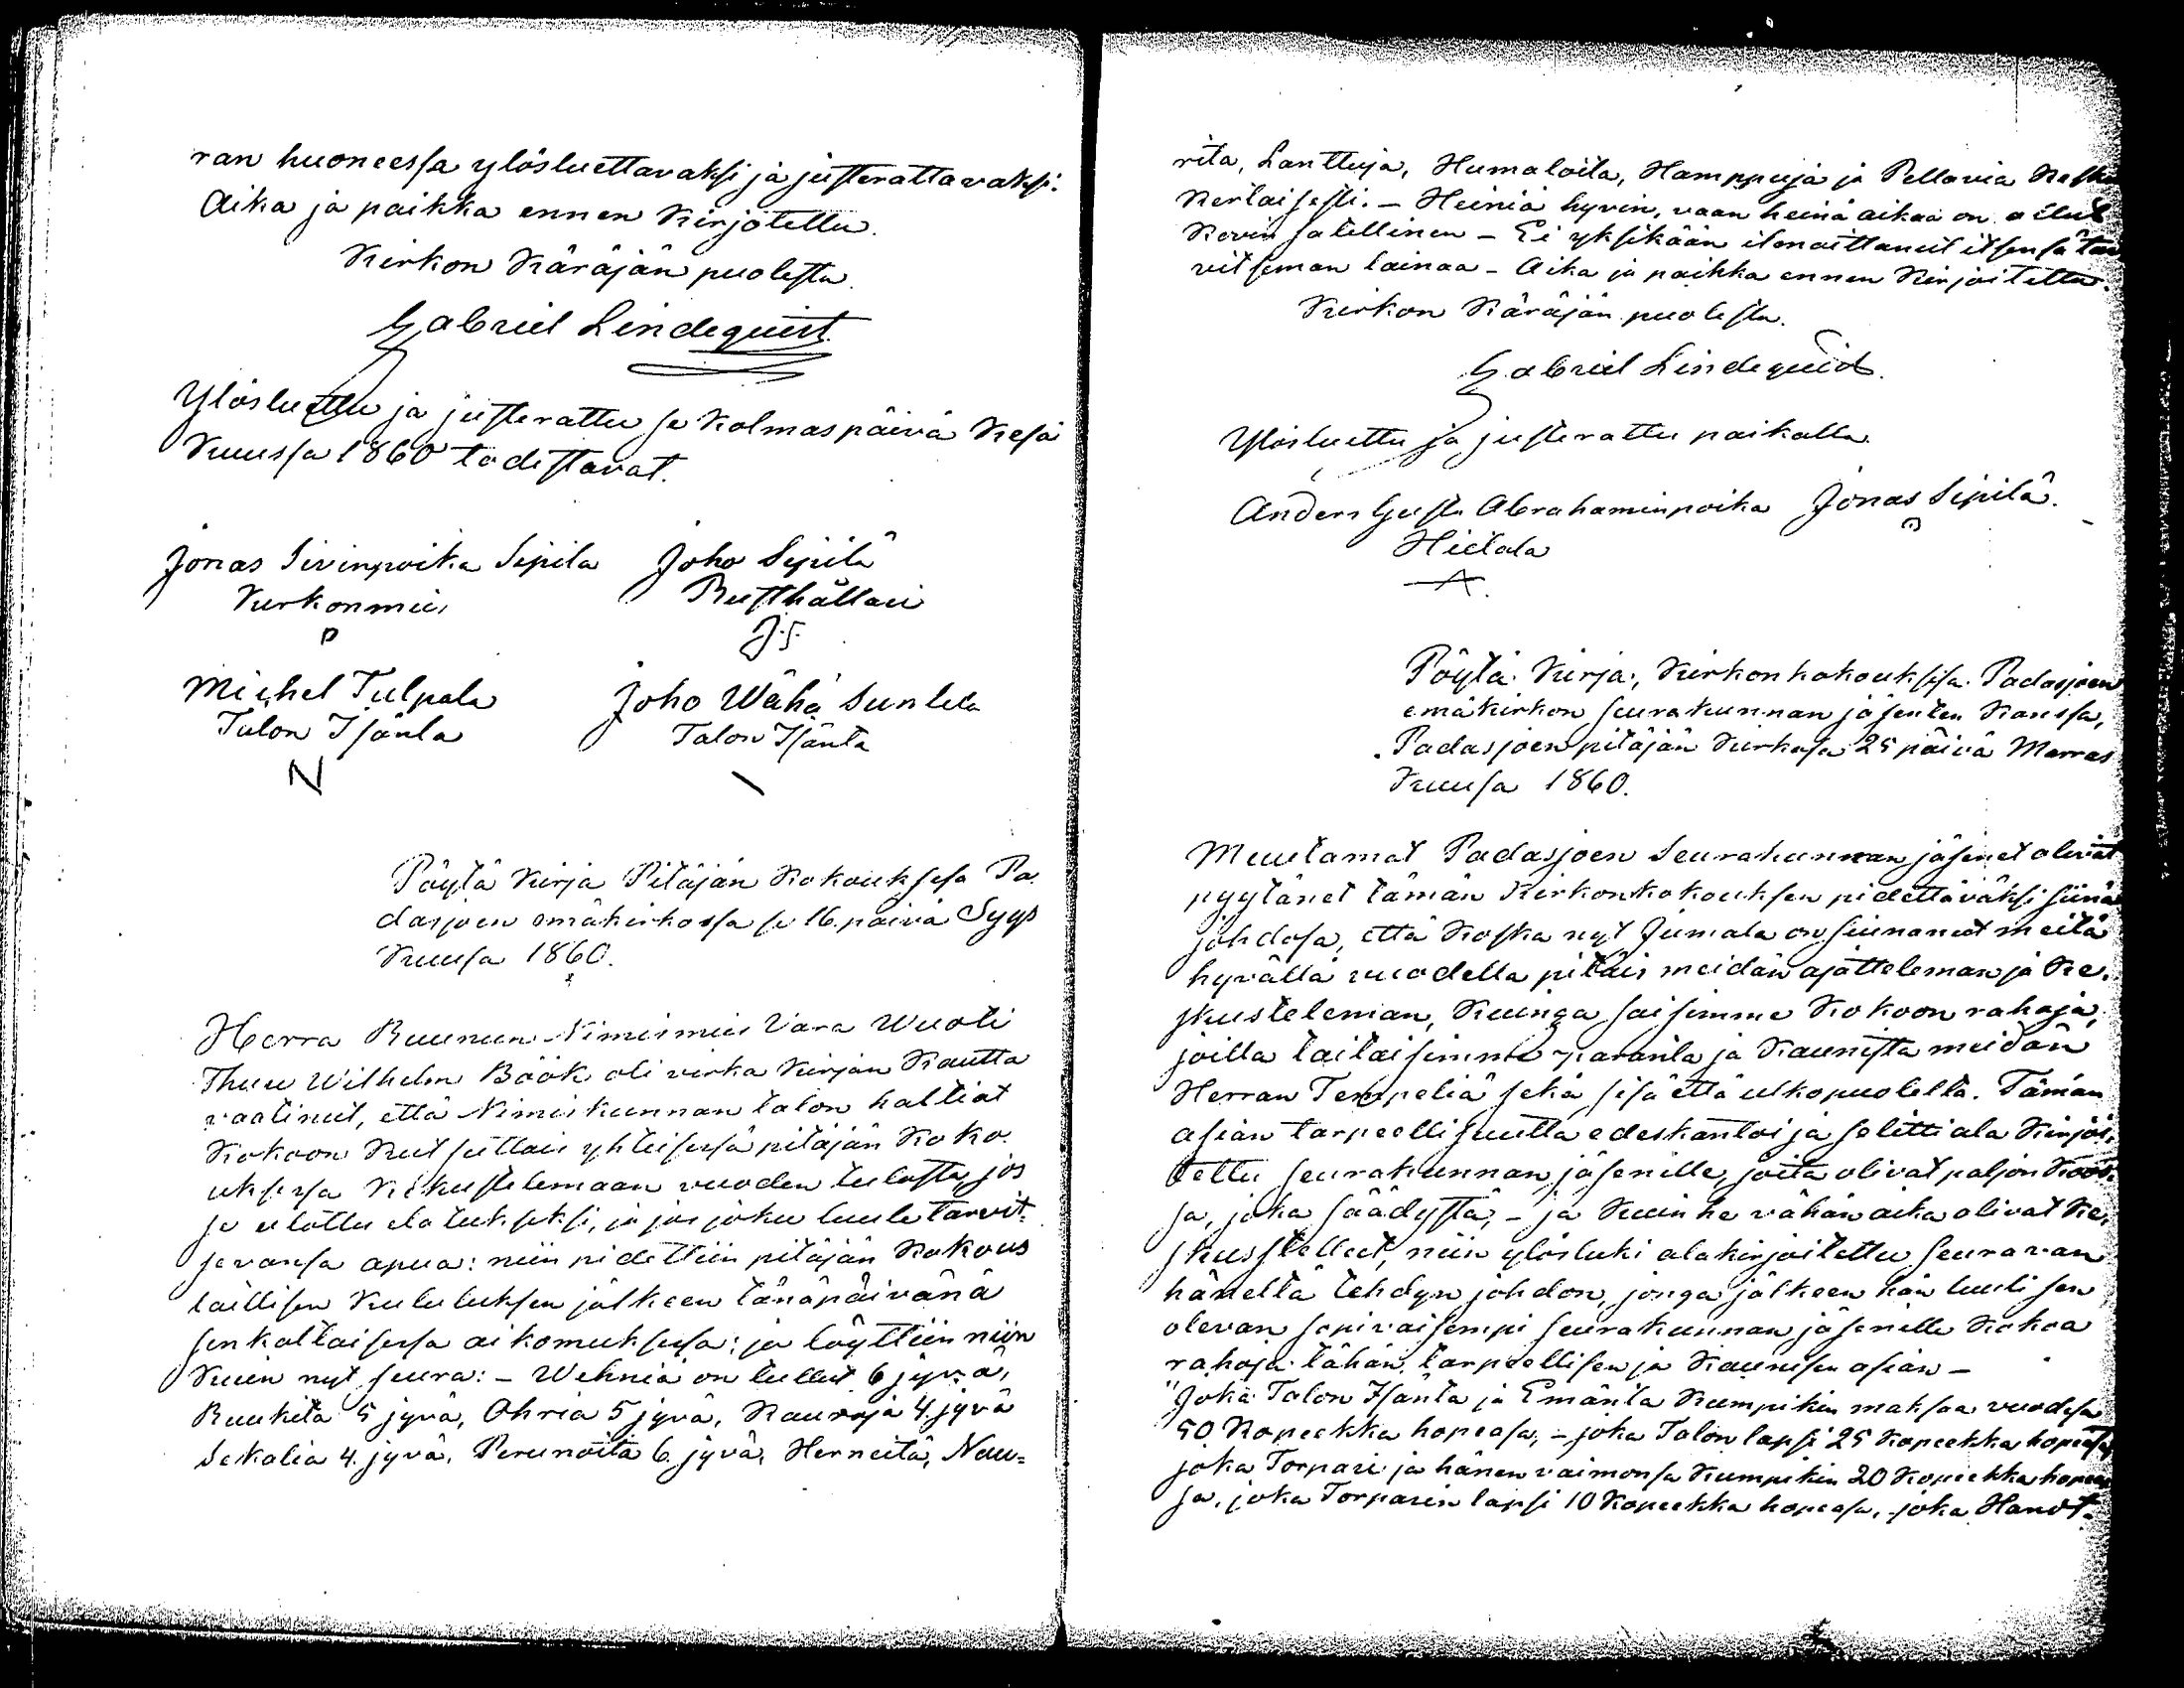 ran huoneessa ylösluettavaksi ja justerattavaksi.
Aika ja paikka ennen kirjotettu.
Kirkon Käräjän puolesta
Gabriel Lindequist.
Ylösluettu ja justerattu se kolmas päivä Kesä
Kuussa 1860 todistavat.
Jonas Sivinpoika Sipilä Joho Sipilä
Kirkonmies Rusthållari
J.S.
Michel Tulpala Joho Wähä Suntela
Talon Isäntä Talon Isäntä
N
Pöytä Kirja Pitäjän Kokouksesa Pa-
dasjoen emäkirkossa se 16. päivä Syys
Kuusa 1860.
Herra Ruunun Nimismies Vara Wuoti
Thure Wilhelm Böök oli virka kirjan kautta
vaatinut, että Nimiskunnan talon haltiat
kokoon kutsuttais yhteisesä pitäjän koko-
uksessa keskustelemaan vuoden tulosta, jos
se ulottu elatukseksi, ja jos joku luule tarvit-
sevansa apua: niin pidettiin pitäjän kokous
laillisen kuulutuksen jälkeen tänäpäivänä
senkaltaisesa aikomuksesa; ja löyttiin niin
kuin nyt seura: - Wehniä on tullut 6 jyvä,
Ruukita 5 jyvä, Ohria 5 jyvä, Kauroja 4 jyvä
Sekalia 4. jyvä, Perunoita 6. jyvä, Herneitä, Nau-
rita, Lanttuja, Humaloita, Hamppuja ja Pellavia Kesh
kertaisesti. - Heiniä hyvin, vaan heinä aikaa on ollut
kovin satellinen - Ei yksikään ilmoittanut itsensä tar
vitseman lainaa - Aika ja paikka ennen kirjoitettu.
Kirkon Käräjän puolesta.
Gabriel Lindequist.
Ylösluettu ja justerattu paikalla.
Anders Gusta Abrahaminpoika Jonas Sipilä.
Hietala
Pöytä Kirja, Kirkonkokouksesa Padasjoen
emäkirkon seurakunnan jäsenten kanssa,
Padasjoen pitäjän kirkosa 25 päivä Marras
Kuusa 1860.
Muutamat Padasjoen Seurakunnan jäsenet olivat
pyytänet tämän kirkonkokouksen pidettäväksi siinä
johdosa, että koska nyt Jumala on siunanut meitä
hyvällä vuodella pitäis meidän ajatteleman ja ke-
skusteleman, kuinga saisimme kokoon rahoja,
joilla taitaisimme paranta ja kaunista meidän
Herran Tempeliä sekä sisä että ulkopuolelta. Tämän
asian tarpeellisuutta edeskantoi ja selitti ala kirjoi-
tettu seurakunnan jäsenille, joita olivat paljon koos-
sa, joka säädystä, - ja kuin he vähän aika olivat ke-
skusstellut, niin ylösluki alakirjoitettu seuravan
häneltä tehdyn johdon, jonga jälkeen hän luuli sen
olevan sopivaisempi seurakunnan jäsenille kokoa
rahoja tähän tarpeellisen ja kaunisen asian -
"Joka Talon Isäntä ja Emäntä kumpikin maksaa vuodesa
50 Kopeekka hopeasa, - joka Talon lapsi 25 Kopeekka hopeasa,
joka Torpari ja hänen vaimonsa kumpikin 20 Kopeekka hopea
sa, joka Torparin lapsi 10 Kopeekka hopeasa, joka Handt-